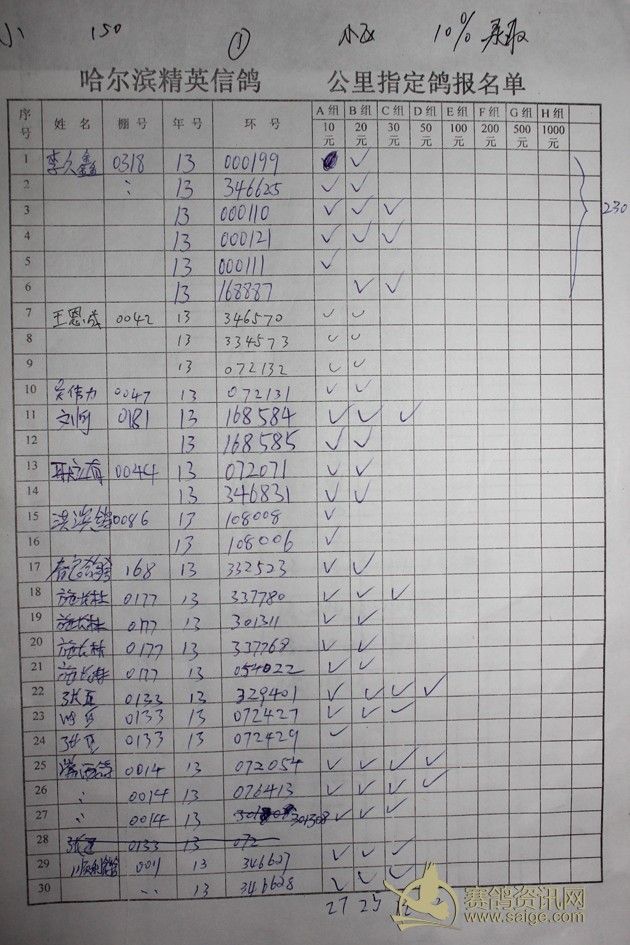 150 ① 10% 录取
哈尔滨精英信鸽 公里指定鸽报名单
序号 姓 名 棚 号 年 号 环 号 A 组 B 组 C 组 D 组 E 组 F 组 G 组 H 组
10元 20元 30元 50元 100元 200元 500元 1000元
1 李久鑫 0318 13 000199 ✓
2 13 346625 ✓ ✓
3 13 000110 ✓ ✓ ✓
4 13 000121 ✓ ✓ ✓
5 13 000111 ✓
6 13 168887 ✓ ✓
230
7 王恩成 0042 13 346570 ✓ ✓
8 13 334573 ✓ ✓
9 13 072132 ✓ ✓
10 0047 13 072131 ✓ ✓
11 0181 13 168584 ✓ ✓ ✓
12 13 168585 ✓ ✓
13 0044 13 072071 ✓ ✓
14 13 346831 ✓ ✓
15 0086 13 108008 ✓
16 13 108006 ✓
17 168 13 332523 ✓ ✓
18 施长林 0177 13 337780 ✓ ✓ ✓
19 施长林 0177 13 301311 ✓ ✓
20 施长林 0177 13 337268 ✓ ✓
21 施长林 0177 13 054022 ✓ ✓
22 0133 13 329401 ✓ ✓ ✓ ✓
23 0133 13 072427 ✓ ✓ ✓
24 0133 13 072429 ✓
25 0014 13 072054 ✓ ✓ ✓ ✓
26 0014 13 076413 ✓ ✓ ✓ ✓
27 0014 13 301308 ✓ ✓ ✓
28 0133 13 072
29 13 346607 ✓ ✓ ✓
30 13 346608 ✓ ✓ ✓
27 25 12
赛鸽资讯网
www.saige.com